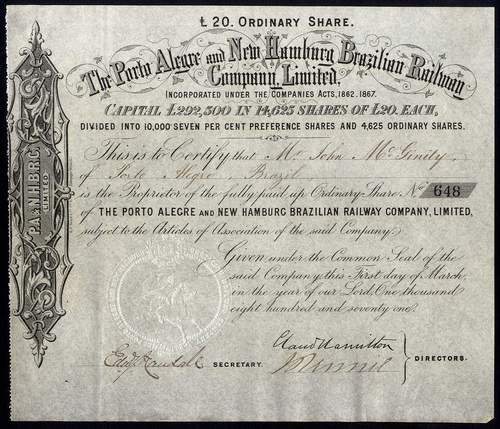 £20. ORDINARY SHARE.
The Porto Alegre and New Hamburg Brazilian Railway
Company, Limited.
INCORPORATED UNDER THE COMPANIES ACTS, 1862. 1867.
CAPITAL £292,500 IN 14,625 SHARES OF £20. EACH,
DIVIDED INTO 10,000 SEVEN PER CENT PREFERENCE SHARES AND 4,625 ORDINARY SHARES.
This is to Certify that Mr John McGinity,
of Porto Alegre, Brazil
is the Proprietor of the fully paid up Ordinary Share No 648
of THE PORTO ALEGRE AND NEW HAMBURG BRAZILIAN RAILWAY COMPANY, LIMITED,
subject to the Articles of Association of the said Company.
Given under the Common Seal of the
said Company this First day of March,
in the year of our Lord, One thousand
eight hundred and seventy one.
P.A. & N.H.B.R.C.
LIMITED
SECRETARY.
Claud Hamilton
DIRECTORS.